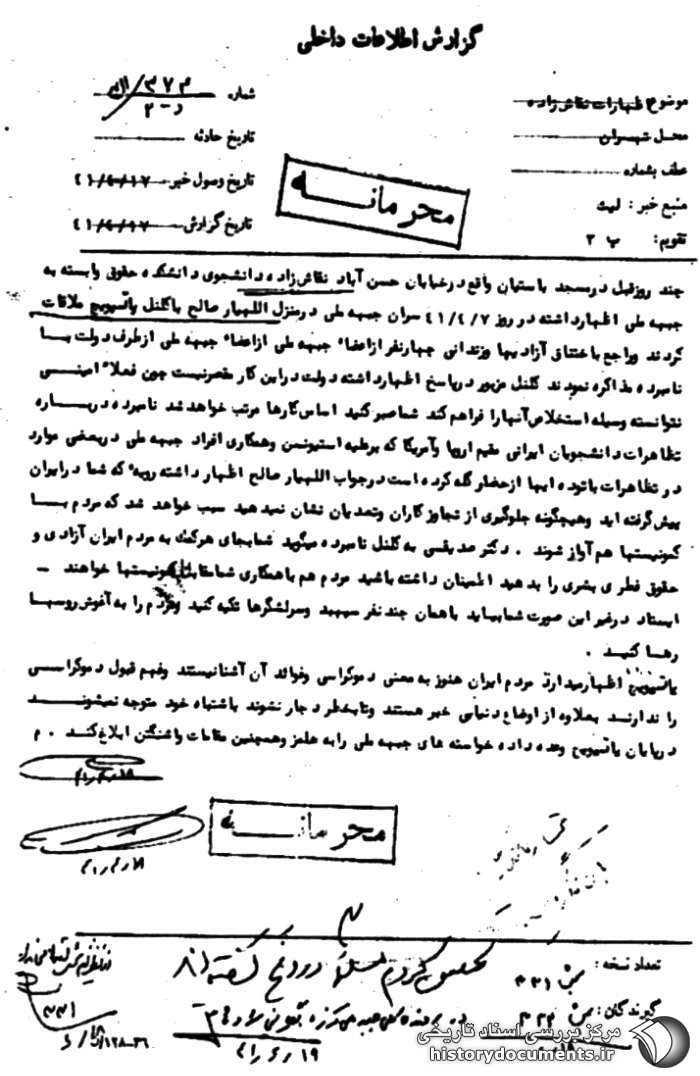 گزارش اطلاعات داخلی
موضوع اظهارات نقاش زاده
محل تهران
عطف بشماره
منبع خبر : لیث
تقویم : ب ۲
شماره ۳۷۴
تاریخ حادثه
تاریخ وصول خبر ۴۱/۴/۱۷
تاریخ گزارش ۴۱/۴/۱۷
محرمانه
چند روز قبل در مسجد باستیان واقع در خیابان حسن آباد نقاش زاده دانشجوی دانشکده حقوق وابسته به
جبهه ملی اظهار داشته در روز ۴۱/۴/۷ سران جبهه ملی در منزل اللهیار صالح با کلنل یاتسویچ ملاقات
کردند و راجع باختناق آزادیها و زندانی چهار نفر از اعضاء جبهه ملی از اعضاء جبهه ملی از طرف دولت بـا
نامبرده مذاکره نمودند کلنل مزبور در پاسخ اظهار داشته دولت در این کار مقصر نیست چون فعلاً امینـی
نتوانسته وسیله استخلاص آنها را فراهم کند شما صبر کنید اساس کارها مرتب خواهد شد نامبرده دربـاره
تظاهرات دانشجویان ایرانی مقیم اروپا و آمریکا که برعلیه استیونسن و همکاری افراد جبهه ملی در بعضی موارد
در تظاهرات با توده ایها از حضار گله کرده است در جواب اللهیار صالح اظهار داشته رویه که شما در ایران
پیش گرفته اید و هیچگونه جلوگیری از تجاوز کاران و متعدیان نشان نمیدهید سبب خواهد شد که مردم بـا
کمونیستها هم آواز شوند . دکتر صدیقی به کلنل نامبرده میگوید شما بجای هر کمک به مردم ایران آزادی و
حقوق فطری بشری را بدهید اطمینان داشته باشید مردم هم با همکاری شما مقابل کمونیستها خواهند -
ایستاد در غیر این صورت شما بیاید با همان چند نفر سپهبد و سرلشگرها تکیه کنید و مردم را به آغوش روسها
رها کنید .
یاتسویچ اظهار میدارد مردم ایران هنوز به معنی دموکراسی و فوائد آن آشنا نیستند و فهم قبول دموکراسـی
را ندارند بعلاوه از اوضاع دنیا بی خبر هستند و تا بخطر دچار نشوند باشتباه خود متوجه نمیشونـد
در پایان یاتسویچ وعده داده خواسته های جبهه ملی را به هلمز و همچنین مقامات واشنگتن ابلاغ کنـد . م
۴۱/۴/۱۸
محرمانه
تعداد نسخه :
گیرندگان :
۴۱/۶/۱۹
مرکز بررسی اسناد تاریخی
historydocuments.ir